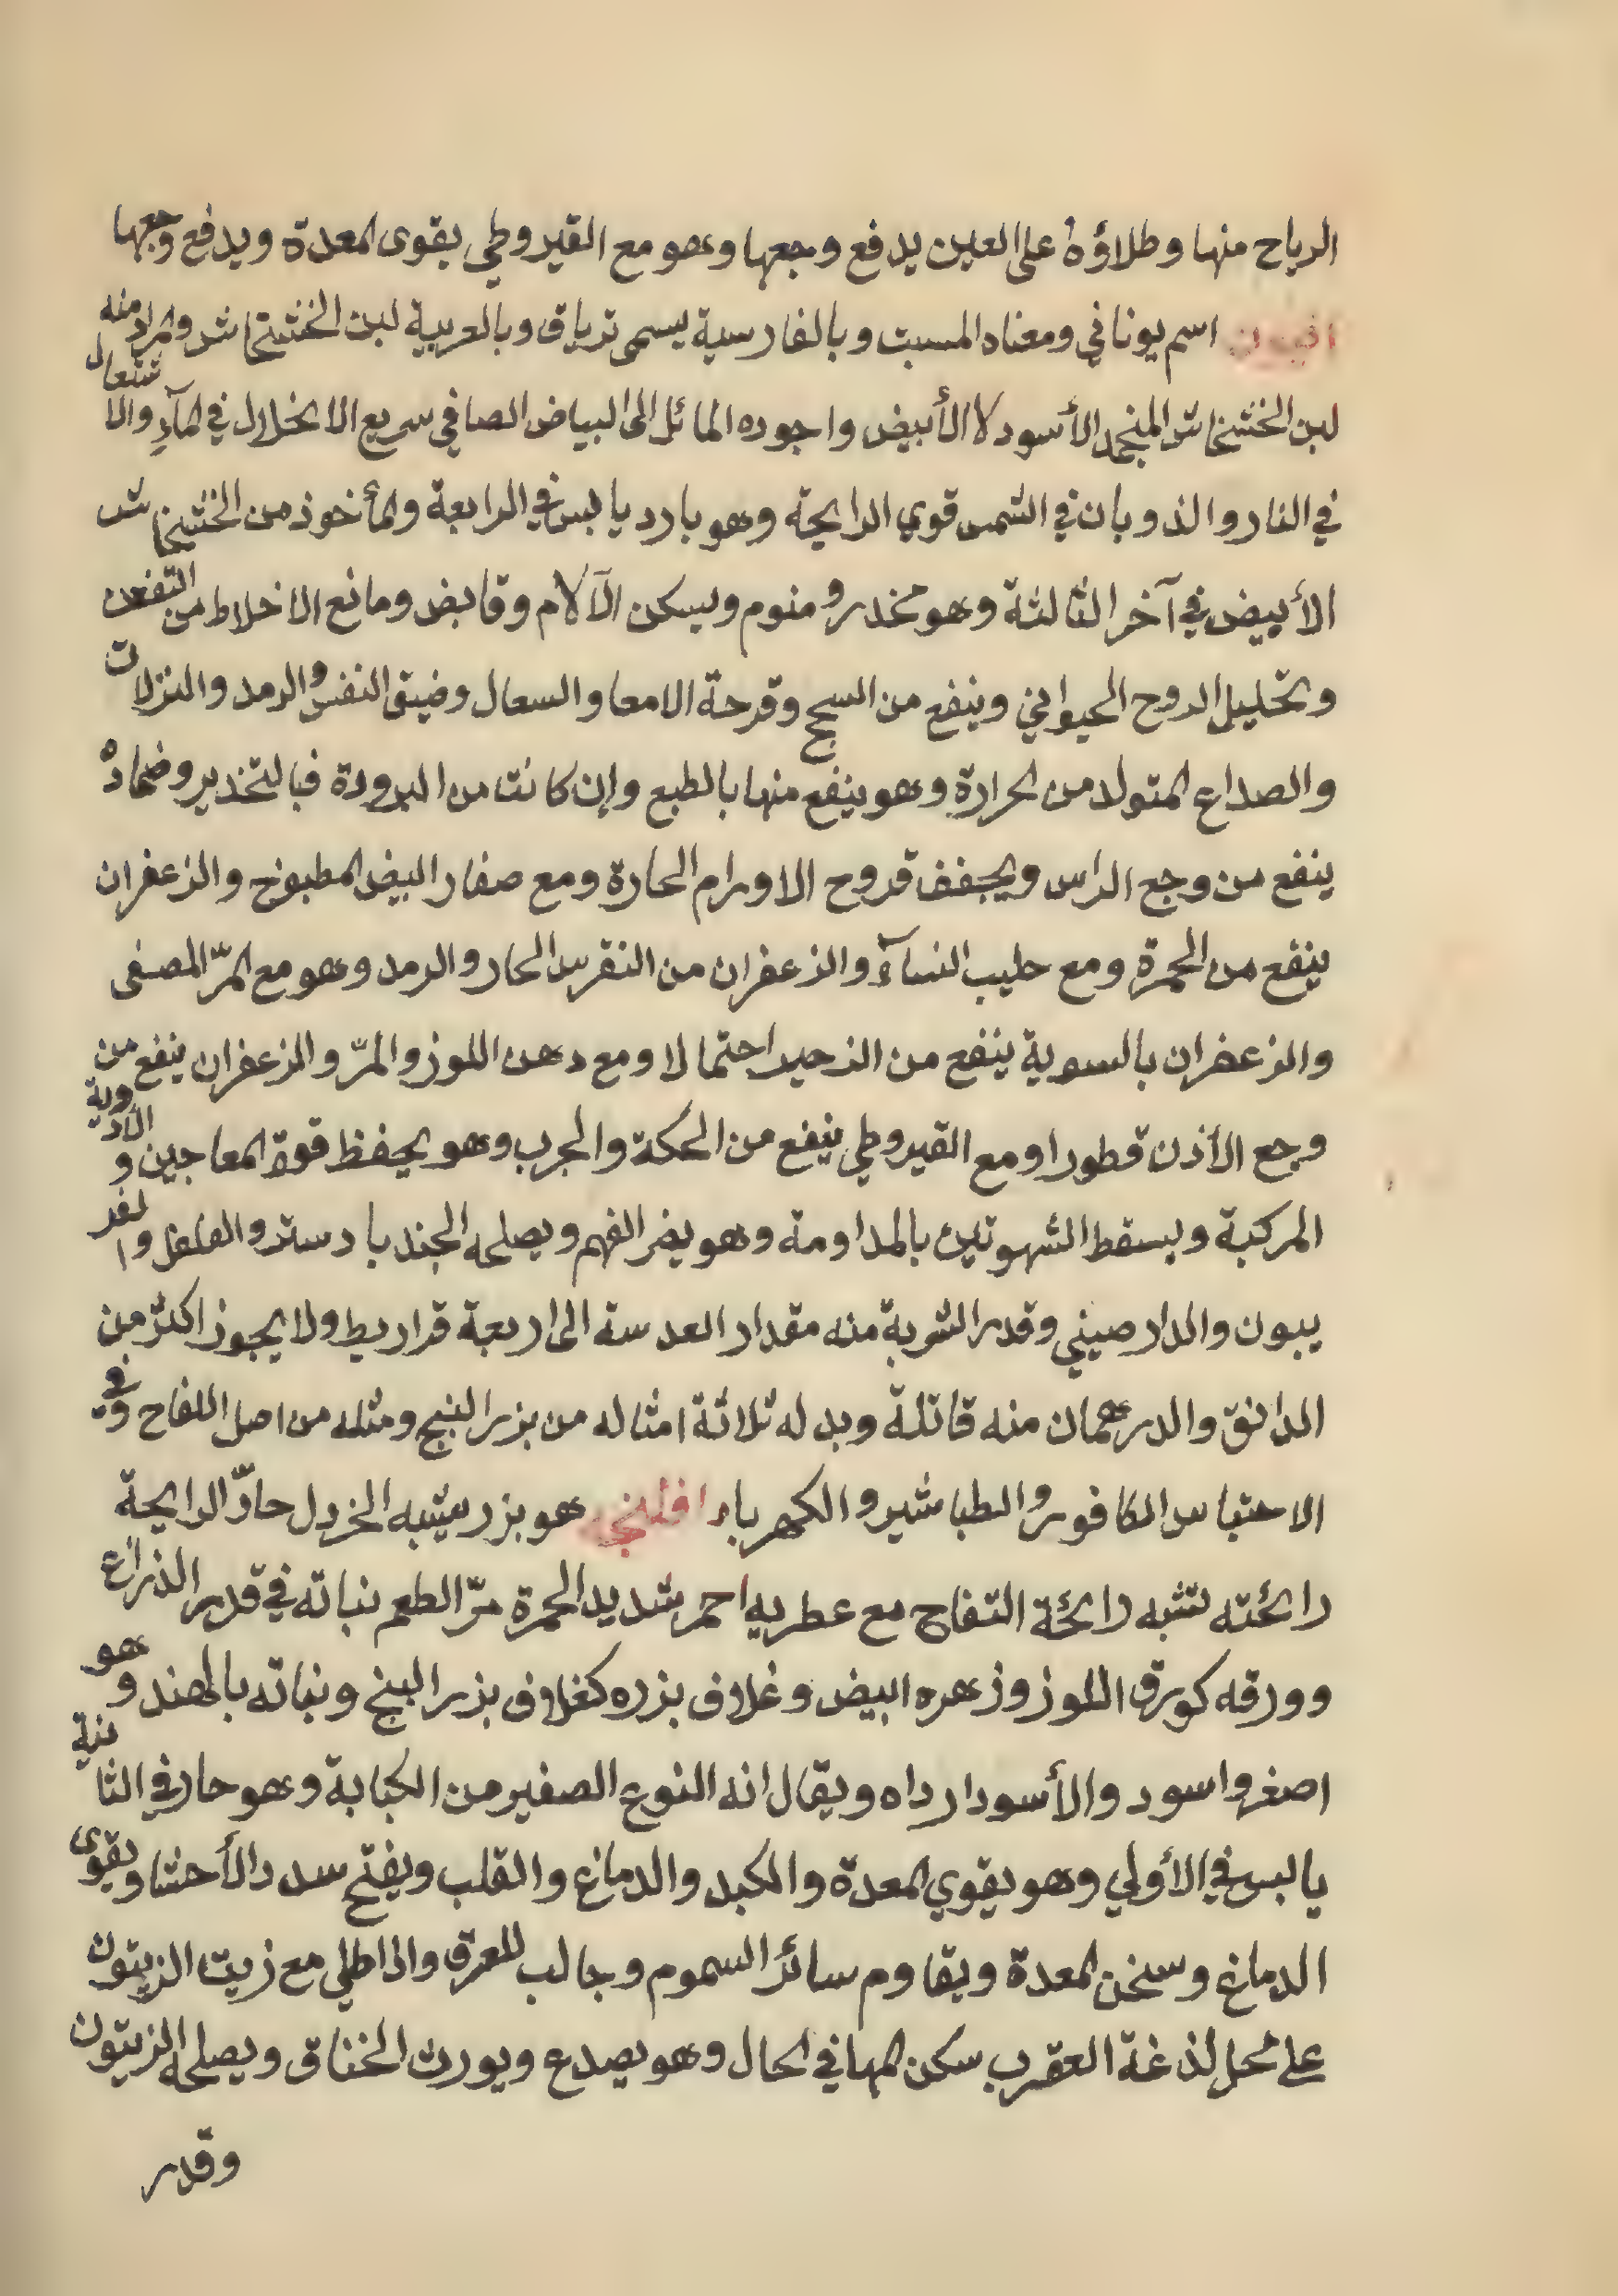 الرياح منها وطلاؤهُ على العين يدفع وجعها وهو مع القيروطي يقوى المعدة ويدفع وجعها
افيون اسم يوناني ومعناه المسبت وبالفارسية يسمى ترياق وبالعربية لبن الخشخاش والمراد منه
لبن الخشخاش المنجمد الأسود لا الأبيض واجوده المائل الى البياض الصافي سريع الانحلال في المآءِ والاشتعال
في النار والذوبان في الشمس قوي الرايحة وهو بارد يابس في الرابعة والمأخوذ من الخشخاش
الأبيض في آخر الثالثة وهو مخدر ومنوم ويسكن الآلام وقابض ومانع الاخلاط من التعفن
وتحليل الروح الحيواني وينفع من السحج وقرحة الامعا والسعال وضيق النفس والرمد والنزلات
والصداع المتولد من الحرارة وهو ينفع منها بالطبع وإن كانت من البرودة فبالتخدير وضمادهُ
ينفع من وجع الراس ويجفف قروح الاورام الحارة ومع صفار البيض المطبوخ والزعفران
ينفع من الحمرة ومع حليب النسآءِ والزعفران من النقرس الحار والرمد وهو مع المرّ المصفى
والزعفران بالسوية ينفع من الزحير احتمالا ومع دهن اللوز والمرّ والزعفران ينفع من
وجع الأذن قطورا ومع القيروطي ينفع من الحكة والجرب وهو يحفظ قوة المعاجين والأدوية
المركبة ويسقط الشهوتين بالمداومة وهو يضر الفهم ويصلحه الجندبادستر والفلفل والفر
بيون والدارصيني وقدر الشربة منه مقدار العدسة الى اربعة قراريط ولا يجوز اكثر من
الدانق والدرهمان منه قاتلة وبدله ثلاثة امثاله من بزر البنج ومثله من اصل اللفاح وفي
الاحتباس الكافور والطباشير والكهرباء افلنجه هو بزر يشبه الخردل حادّ الرايحة
رائحته تشبه رائحة التفاح مع عطريه احمر شديد الحمرة مرّ الطعم نباته في قدر الذراع
وورقه كورق اللوز وزهره ابيض وغلاف بزره كغلاف بزر البنج ونباته بالهند وهو
اصغر واسود والأسود ارداه ويقال انه النوع الصغير من الكبابة وهو حار في الثانية
يابس في الأولي وهو يقوي المعدة والكبد والدماغ والقلب ويفتح سدد الأحشا ويقوى
الدماغ وسخن المعدة ويقاوم سائر السموم وجالب للعرق واذا طلي مع زيت الزيتون
على محل لذغة العقرب سكن المها في الحال وهو يصدع ويورث الخناق ويصلحه الزيتون
وقدر